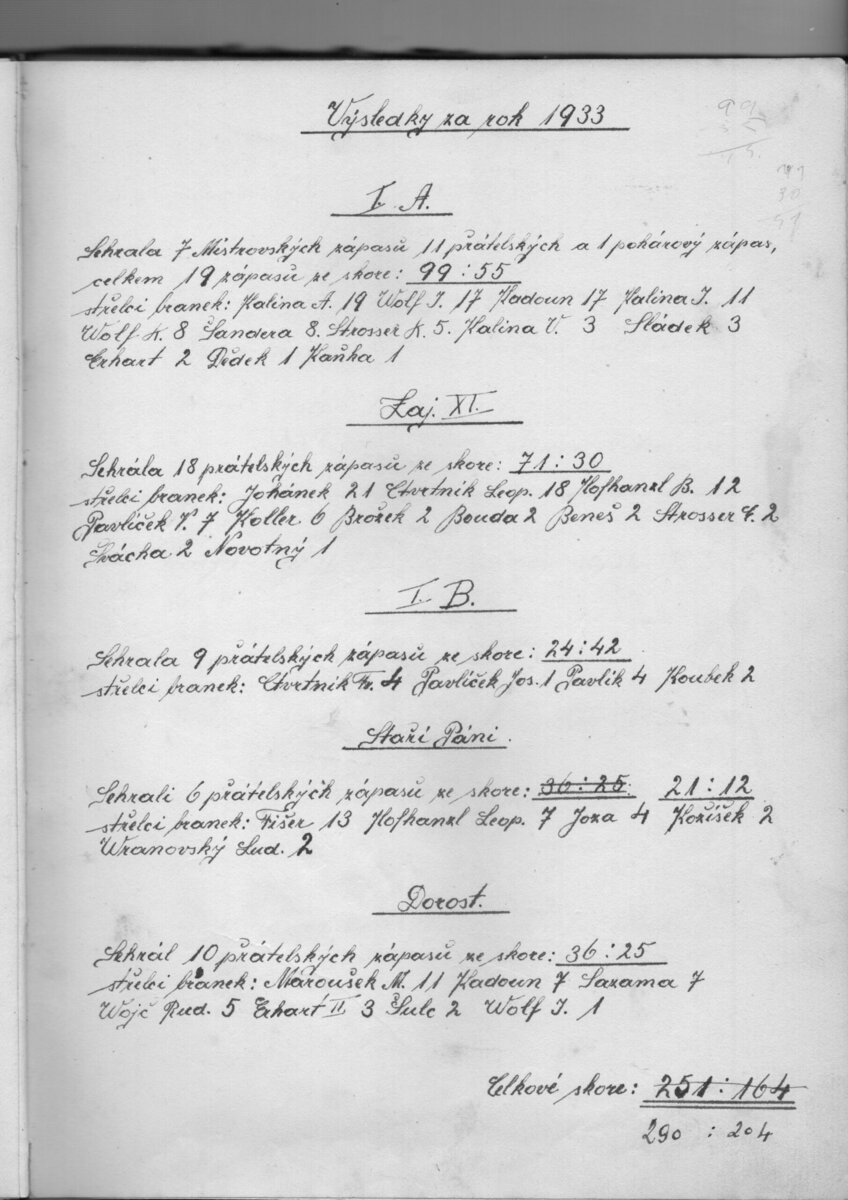 Výsledky za rok 1933
99
55
71
30
I. A.
Sehrala 7 Mistrovských zápasů 11 přátelských a 1 pohárový zápas,
celkem 19 zápasů ze skore: 99 : 55
střelci branek: Kalina A. 19 Wolf J. 17 Kadoun 17 Kalina J. 11
Wolf K. 8 Šandera 8. Strosser K. 5. Kalina V. 3 Sládek 3
Erhart 2 Dědek 1 Kaňka 1
Zaj. XI.
Sehrála 18 přátelských zápasů ze skore: 71 : 30
střelci branek: Johánek 21 Čtvrtnik Leop. 18 Hofhanzl B. 12
Pavlíček V. 7 Koller 6 Brožek 2 Bouda 2 Beneš 2 Strosser 2
Svácha 2 Novotný 1
I. B.
Sehrala 9 přátelských zápasů ze skore: 24 : 42
střelci branek: Čtvrtnik Fr. 4 Pavlíček Jos. 1 Pavlik 4 Koubek 2
Staří Páni.
Sehráli 6 přátelských zápasů ze skore: 36 : 25 21 : 12
střelci branek: Fišer 13 Hofhanzl Leop. 7 Joza 4 Kožíšek 2
Wranovský Lud. 2
Dorost.
Sehrál 10 přátelských zápasů ze skore: 36 : 25
střelci branek: Maroušek M. 11 Kadoun 7 Sazama 7
Wojč Rud. 5 Erhart II 3 Šulc 2 Wolf J. 1
Celkové skore: 251 : 164
290 : 204